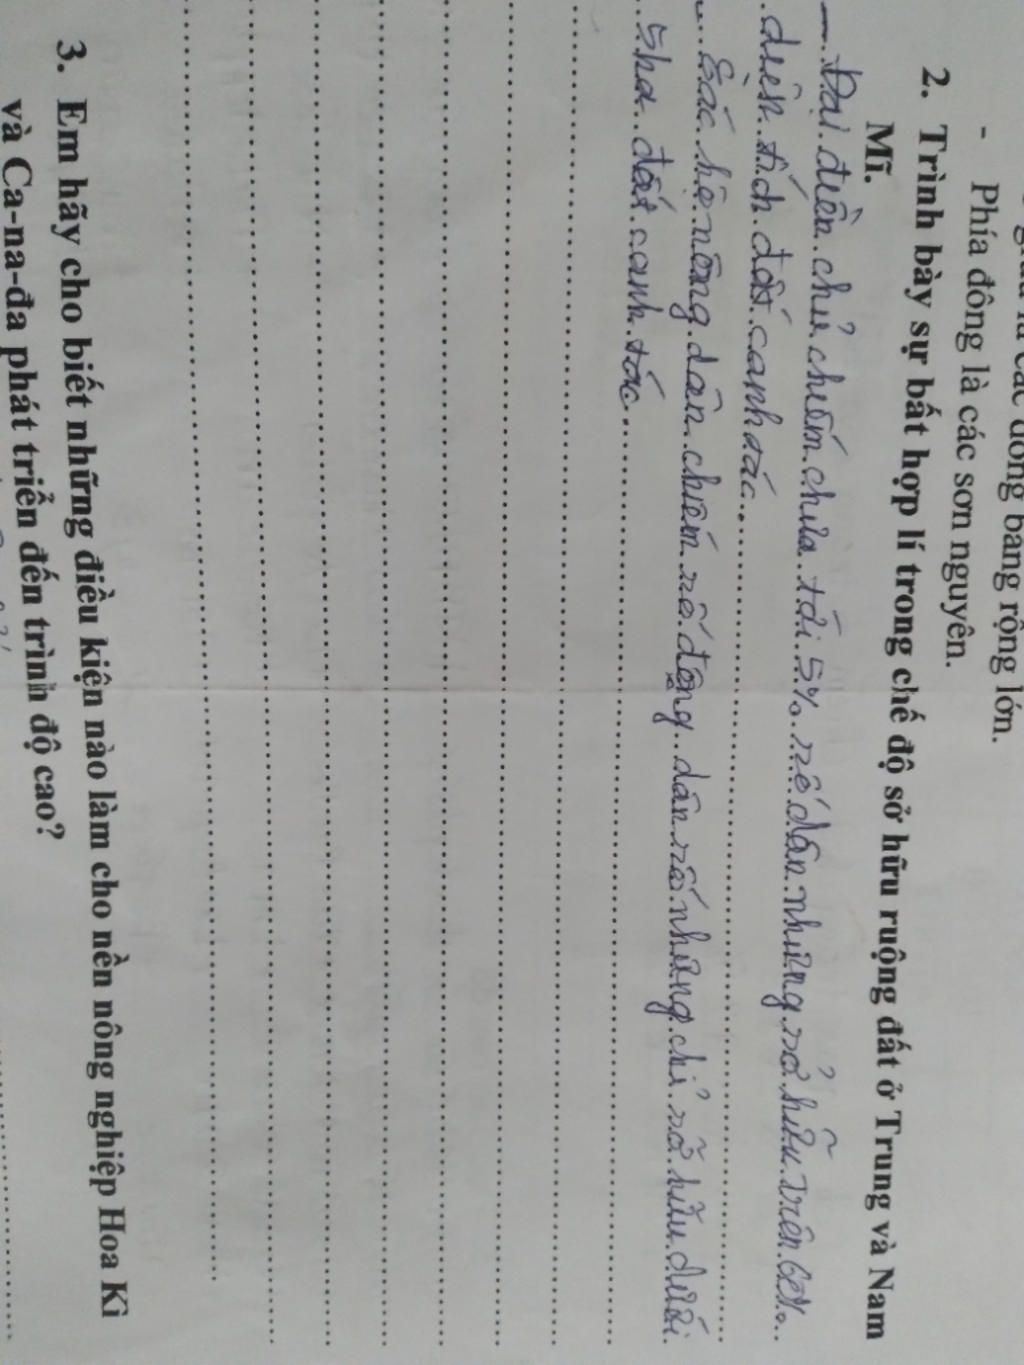 giữa là các đồng bằng rộng lớn.
- Phía đông là các sơn nguyên.
2. Trình bày sự bất hợp lí trong chế độ sở hữu ruộng đất ở Trung và Nam
Mĩ.
– Đại điền chủ chiếm chưa tới 5% số dân nhưng sở hữu trên 60%
diện tích đất canh tác
– Các hộ nông dân chiếm số đông dân số nhưng chỉ sở hữu dưới
5ha đất canh tác
3. Em hãy cho biết những điều kiện nào làm cho nền nông nghiệp Hoa Kì
và Ca-na-đa phát triển đến trình độ cao?